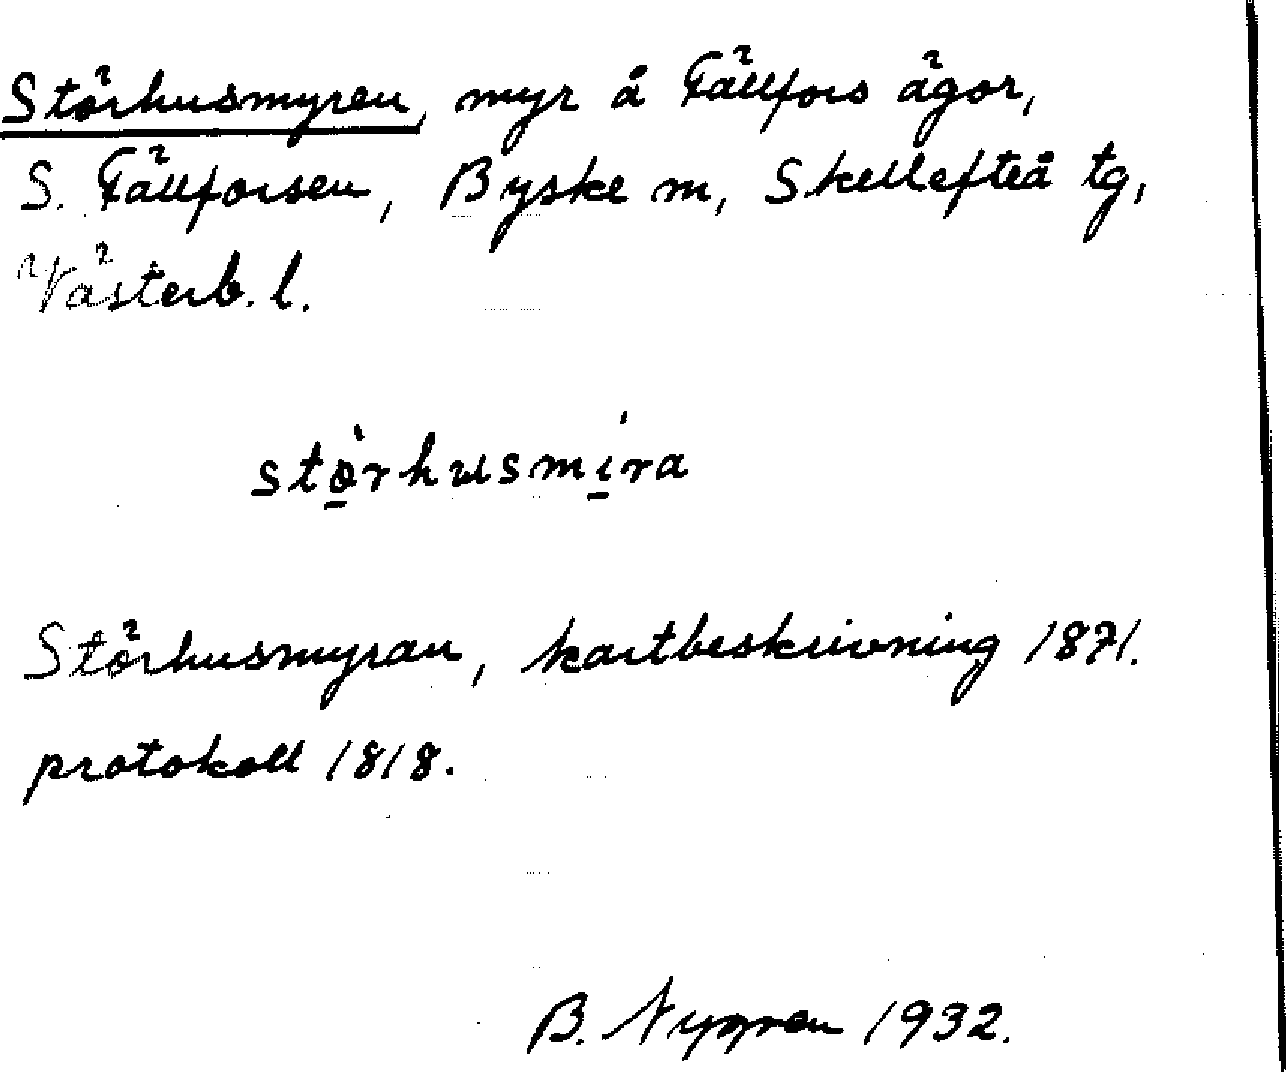 Störhusmyren, myr å Fällfors ägor,
S. Fällforsen, Byske sn, Skellefteå tg,
Västerb. l.
stò̱rhusmí̱ra
Störhusmyran, kartbeskrivning 1871.
protokoll 1818.
B. Nygren 1932.